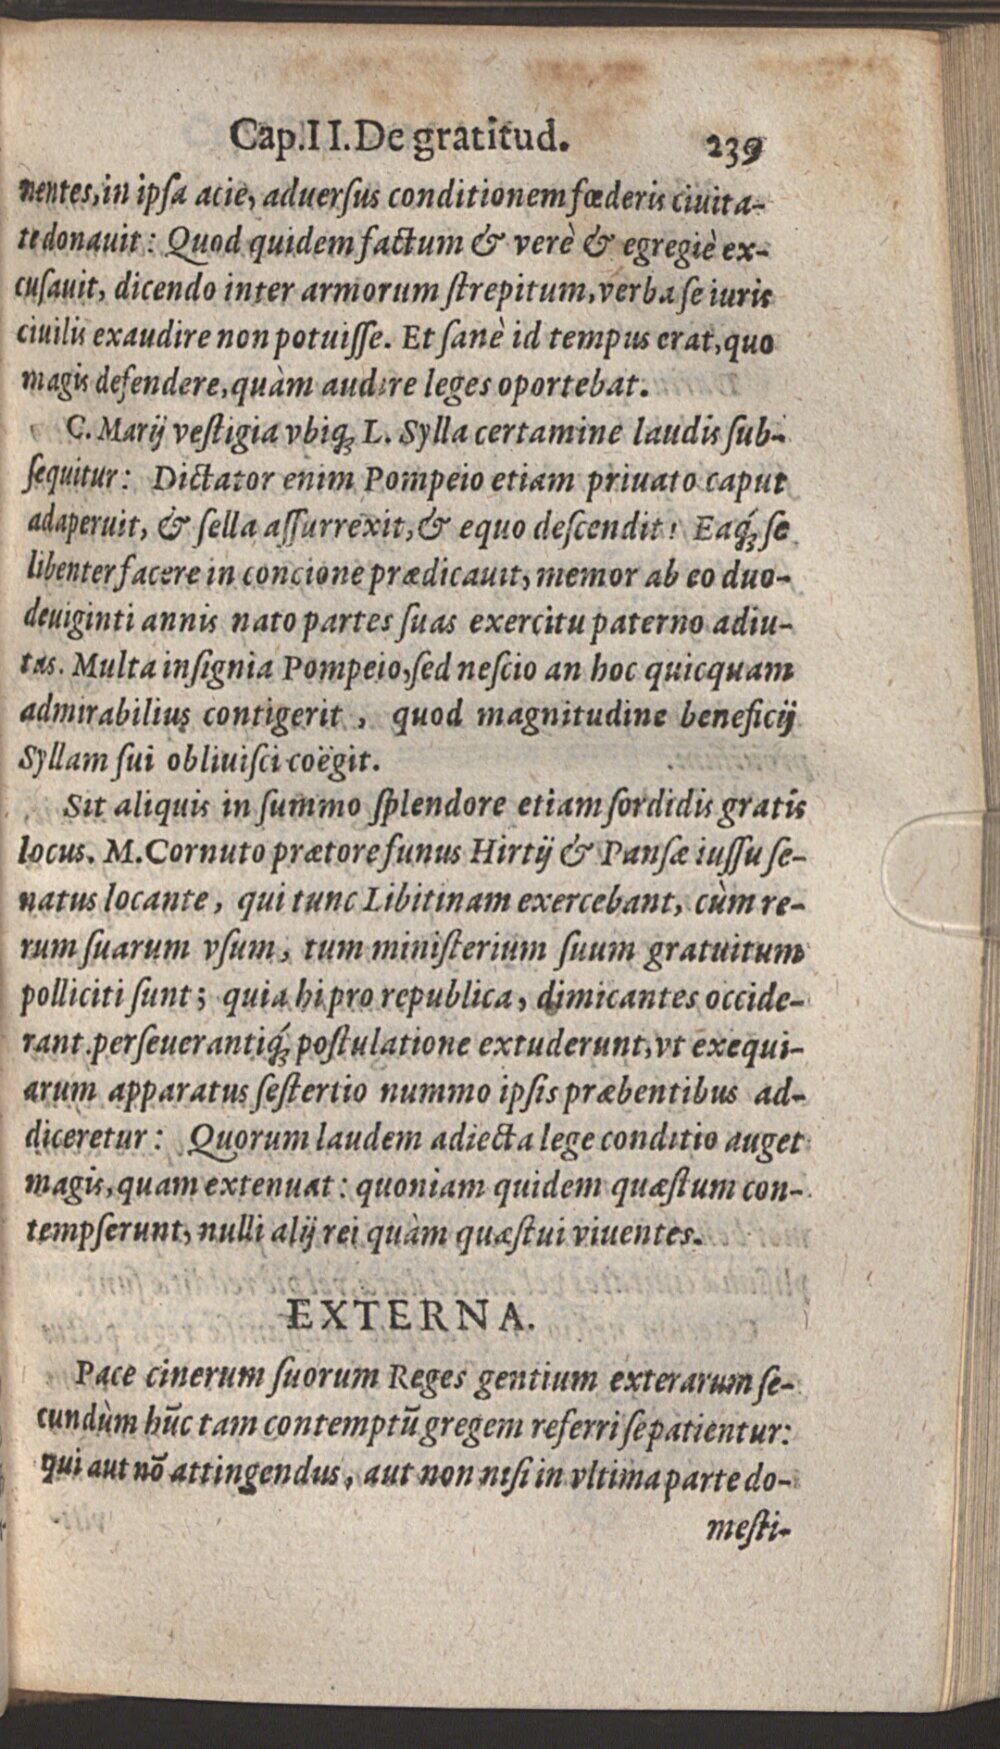 Cap.II.De gratitud. 239
nentes,in ipſa acie, aduerſus conditionem fœderis ciuita-
te donauit: Quod quidem factum & verè & egregiè ex-
cuſauit, dicendo inter armorum ſtrepitum,verba ſe iuris
ciuilis exaudire non potuiſſe. Et ſanè id tempus erat,quo
magis defendere,quàm audire leges oportebat.
C. Marij veſtigia vbiq́; L. Sylla certamine laudis ſub-
ſequitur: Dictator enim Pompeio etiam priuato caput
adaperuit, & ſella aſſurrexit,& equo deſcendit: Eaq́; ſe
libenter facere in concione prædicauit, memor ab eo duo-
deuiginti annis nato partes ſuas exercitu paterno adiu-
tas. Multa inſignia Pompeio,ſed neſcio an hoc quicquam
admirabilius contigerit, quod magnitudine beneficij
Syllam ſui obliuiſci coëgit.
Sit aliquis in ſummo ſplendore etiam ſordidis gratis
locus. M.Cornuto prætore funus Hirtij & Panſæ iuſſu ſe-
natus locante, qui tunc Libitinam exercebant, cùm re-
rum ſuarum vſum, tum miniſterium ſuum gratuitum
polliciti ſunt; quia hi pro republica, dimicantes occide-
rant.perſeuerantiq́; poſtulatione extuderunt,vt exequi-
arum apparatus ſeſtertio nummo ipſis præbentibus ad-
diceretur: Quorum laudem adiecta lege conditio auget
magis,quam extenuat: quoniam quidem quæſtum con-
tempſerunt, nulli alij rei quàm quæſtui viuentes.
EXTERNA.
Pace cinerum ſuorum Reges gentium exterarum ſe-
cundùm hūc tam contemptū gregem referri ſe patientur:
qui aut nō attingendus, aut non niſi in vltima parte do-
meſti-